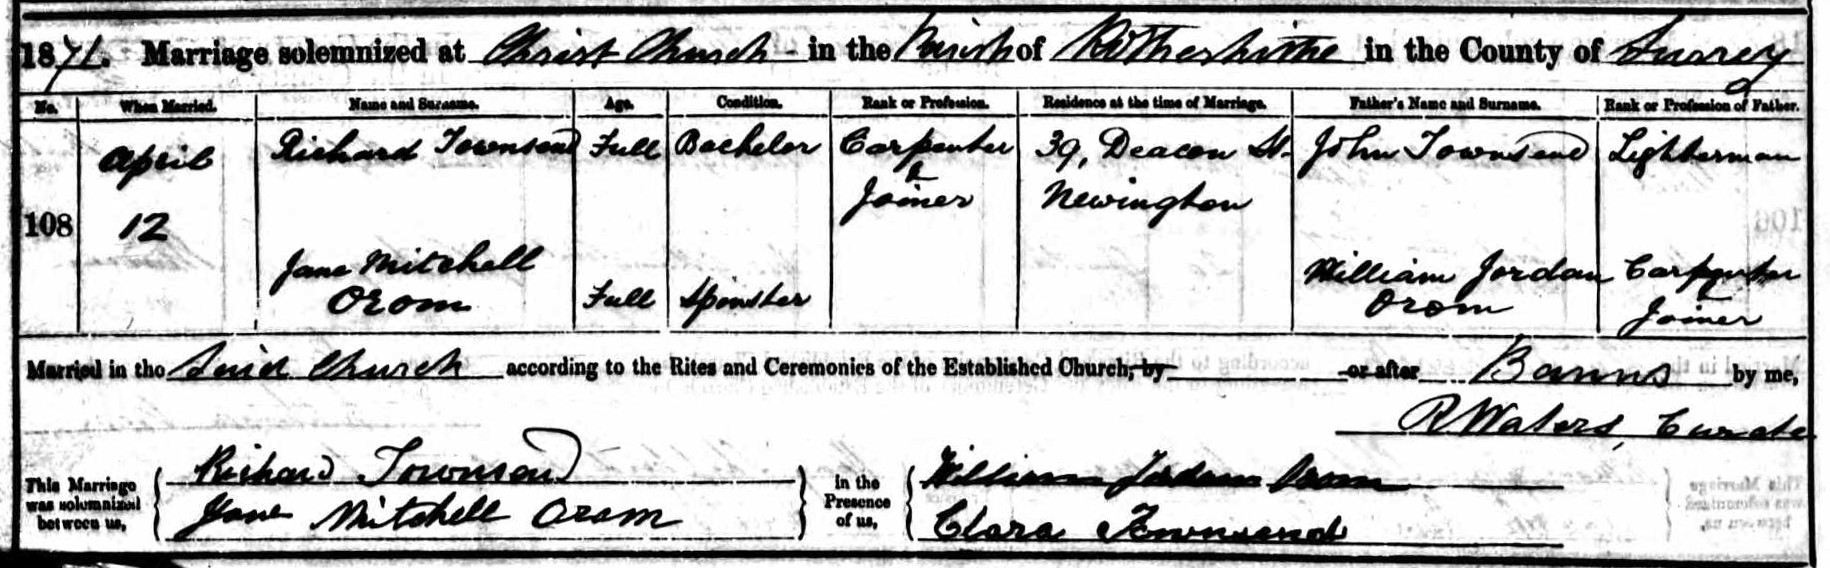 1871. Marriage solemnized at Christ Church in the Parish of Rotherhithe in the County of Surrey
No. When Married. Name and Surname. Age. Condition. Rank or Profession. Residence at the time of Marriage. Father's Name and Surname. Rank or Profession of Father.
April Richard Townsend Full Bachelor Carpenter 39, Deacon St. John Townsend Lighterman
108 12 & Joiner Newington
Jane Mitchell William Jordan Carpenter
Orom Full Spinster Orom & Joiner
Married in the Said Church according to the Rites and Ceremonies of the Established Church, by or after Banns by me,
R Waters, Curate
This Marriage was solemnized between us, Richard Townsend in the Presence of us, William Jordan Orom
Jane Mitchell Orom Clara Townsend